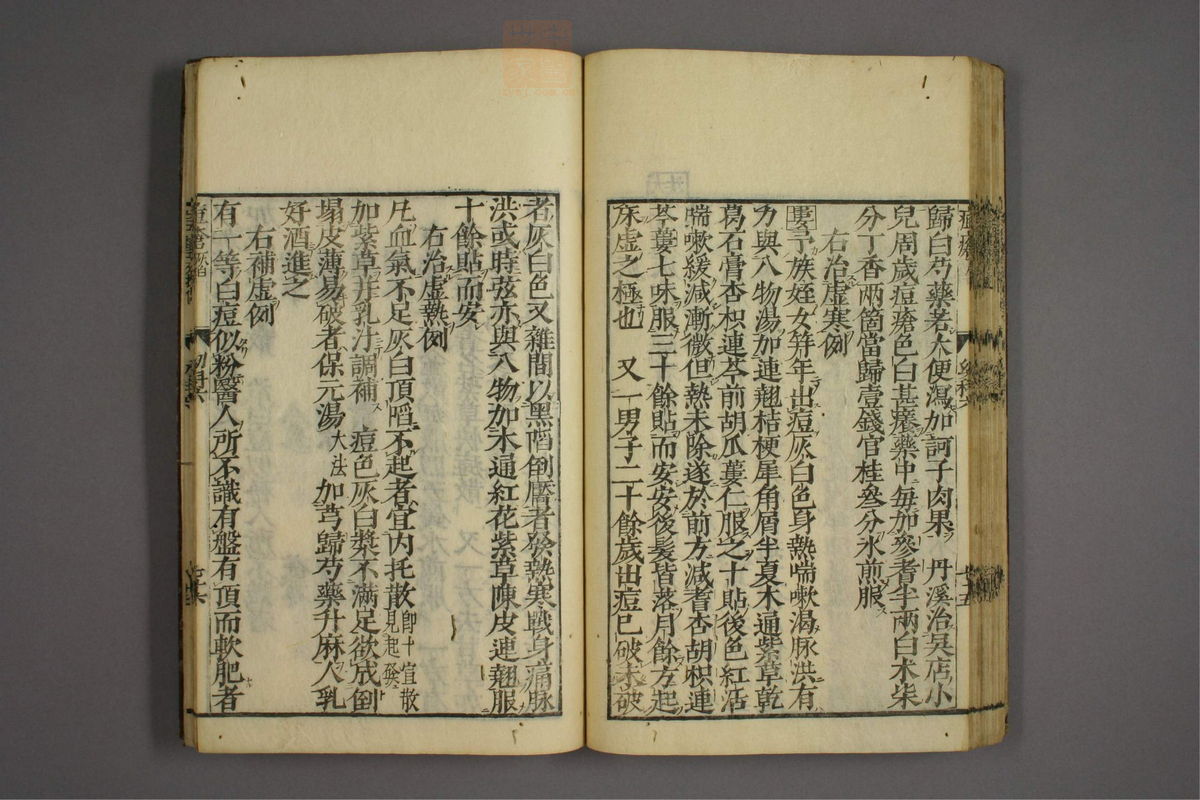 歸白芍藥若大便瀉加訶子肉果　丹溪治吳店小
兒周歲痘瘡色白甚癢藥中每加參耆半兩白朮柒
分丁香兩箇當歸壹錢官桂叄分水煎服
右治虛寒例
婁子族姪女笄年出痘灰白色身熱喘嗽渴脉洪有
力與八物湯加連翹桔梗犀角屑半夏木通紫草乾
葛石膏杏枳連芩前胡瓜蔞仁服之十貼後色紅活
喘嗽緩減漸微但熱未除遂於前方減耆杏胡枳連
芩蔞七味服三十餘貼而安安後髮皆落月餘方起
床虛之極也　又一男子二十餘歲出痘已破未破
者灰白色又雜間以黑陷倒靨者發熱寒戰身痛脉
洪或時弦亦與八物加木通紅花紫草陳皮連翹服
十餘貼而安
右治虛熱例
凡血氣不足灰白頂陷不起者宜內托散即十宣散見起發
加紫草并乳汁調補　痘色灰白漿不滿足欲成倒
塌皮薄易破者保元湯大法加芎歸芍藥升麻人乳
好酒進之
右補虛例
有一等白痘似粉醫人所不識有盤有頂而軟肥者